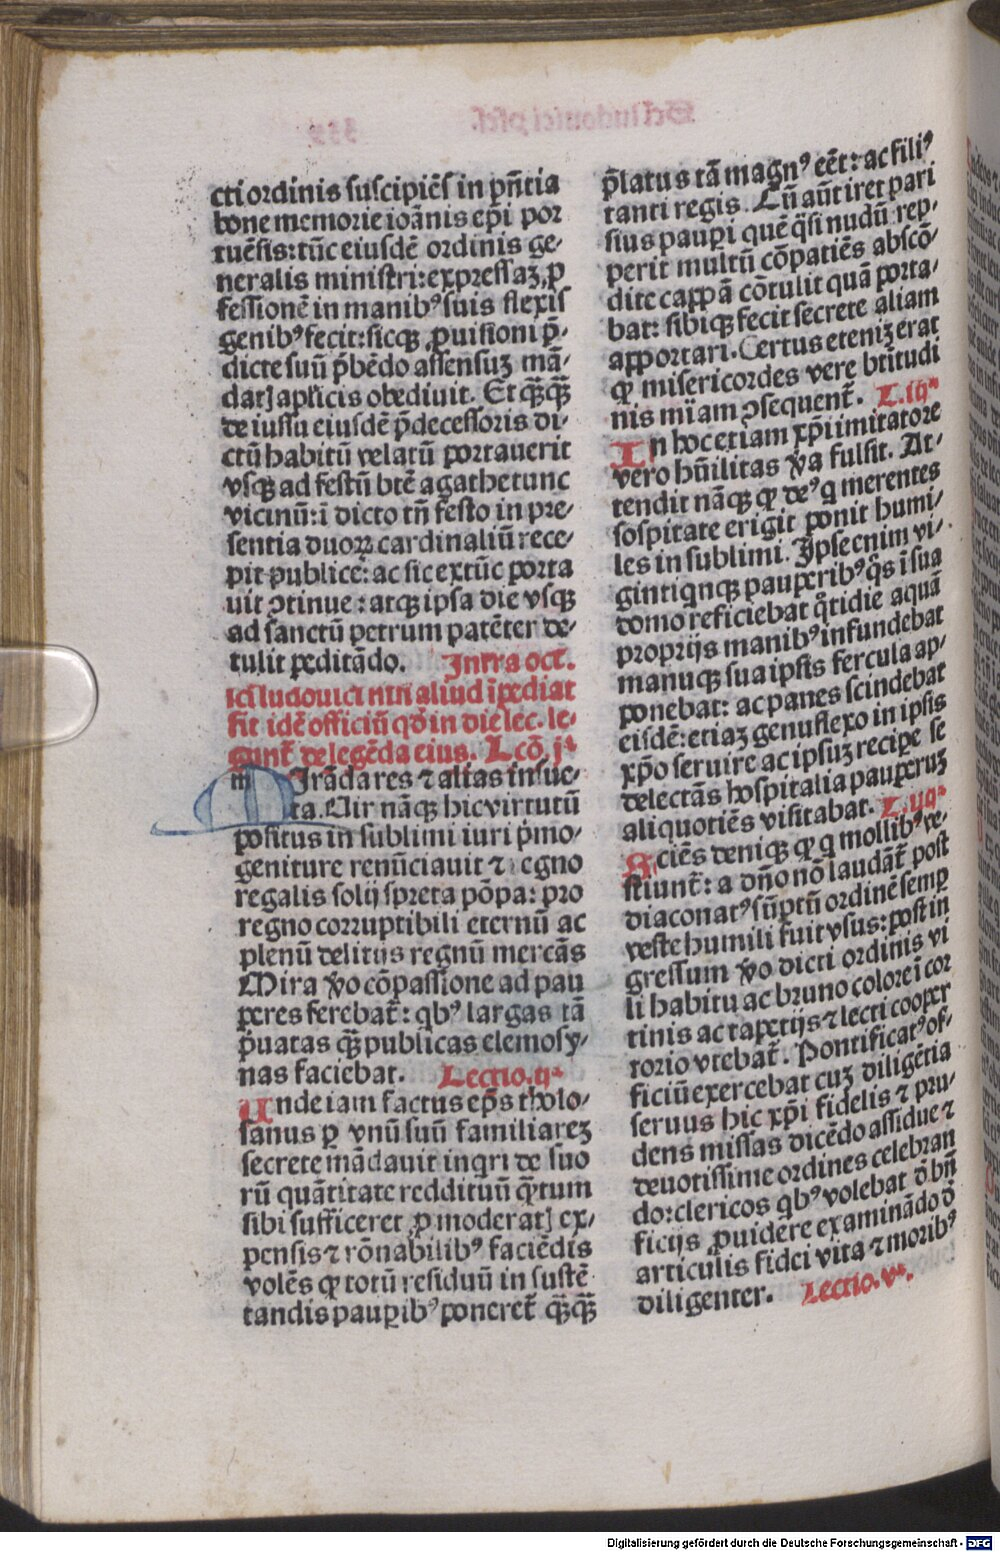 cti ordinis suscipiēs in pn̄tia
bone memorie ioānis ep̄i por
tuēsis: tūc eiusdē ordinis ge⸗
neralis ministri: expressaꝫ ꝓ
fessionē in manibꝰ suis flexis
genibꝰ fecit: sicqꝫ ꝓuisioni p̄⸗
dicte suū p̄bēdo assensuꝫ mā⸗
datꝭ apl̄icis obediuit. Et qꝫ̄qꝫ̄
de iussu eiusdē p̄decessoris di⸗
ctū habitū velatū portauerit
vsqꝫ ad festū btē agathe tunc
vicinū: ī dicto tn̄ festo in pre⸗
sentia duoꝝ cardinaliū rece⸗
pit publice: ac sic extūc porta
uit ꝯtinue: atqꝫ ipsa die vsqꝫ
ad sanctū petrum patēter de⸗
tulit peditādo. Infra oct.
sci ludouici nisi aliud īpediat
fit idē officiū qd̄ in die lec. le⸗
gunt̄ de legēda eius. Lcō. jᵃ
mIrāda res ⁊ alias insue⸗
ta. Uir nāqꝫ hic virtutū
positus in sublimi iuri p̄mo⸗
geniture renūciauit ⁊ regno
regalis solij spreta pōpa: pro
regno corruptibili eternū ac
plenū delitijs regnū mercās
Mira ꝟo cōpassione ad pau
peres ferebat̄: qbꝰ largas tā
p̄uatas qꝫ̄ publicas elemosy⸗
nas faciebat. Lectio. ijᵃ
Unde iam factus ep̄s tholo⸗
sanus ꝑ vnū suū familiareꝫ
secrete mādauit inqri de suo
rū quātitate reddituū qꝫ̄tum
sibi sufficeret ꝓ moderatꝭ ex⸗
pensis ⁊ rōnabilibꝰ faciēdis
volēs ꝙ totū residuū in sustē
tandis pauꝑibꝰ poneret̄ qꝫ̄qꝫ̄
p̄latus tā magnꝰ eēt: ac filiꝰ
tanti regis. Cū aūt iret pari
sius pauꝑi quē q̄si nudū rep⸗
perit multū cōpatiēs abscō⸗
dite cappā cōtulit quā porta⸗
bat: sibiqꝫ fecit secrete aliam
apportari. Certus eteniꝫ erat
ꝙ misericordes vere btītudi
nis mīam ꝯsequent̄. L. iijᵃ
In hoc etiam xp̄i imitatore
vero hūilitas ꝟa fulsit. At⸗
tendit nāqꝫ ꝙ deꝰ q merentes
sospitate erigit ponit humi⸗
les in sublimi. Ipse enim vi⸗
gintiqnqꝫ pauꝑibꝰ q̄s ī sua
domo reficiebat q̄tidie aquā
proprijs manibꝰ infundebat
manuqꝫ sua ipsis fercula ap⸗
ponebat: ac panes scindebat
eisdē: etiaꝫ genuflexo in ipsis
xp̄o seruire ac ipsuꝫ recipe se
delectās hospitalia pauperuꝫ
aliquotiēs visitabat. L. iiijᵃ
Sciēs deniqꝫ ꝙ q mollibꝰ ve⸗
stiunt̄: a dn̄o nō laudāt̄ post
diaconatꝰ sūptū ordinē semp
veste humili fuit vsus: post in
gressum ꝟo dicti ordinis vi
li habitu ac bruno colore ī cor
tinis ac tapetijs ⁊ lecti cooper
torio vtebat̄. Pontificatꝰ of⸗
ficiū exercebat cuꝫ diligētia
seruus hic xp̄i fidelis ⁊ pru⸗
dens missas dicēdo assidue ⁊
deuotissime ordines celebran
do: clericos qbꝰ volebat ō bn̄
ficijs ꝓuidere examinādo ō
articulis fidei vita ⁊ moribꝰ
diligenter. Lectio. vᵃ.
Digitalisierung gefördert durch die Deutsche Forschungsgemeinschaft - DFG